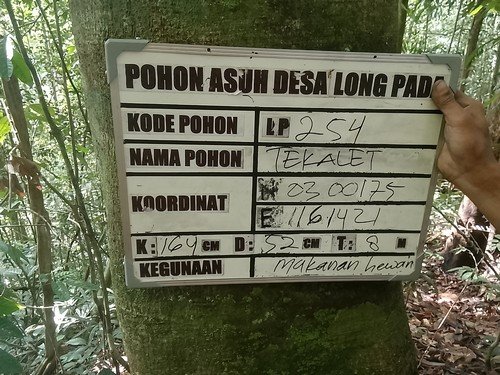 POHON ASUH DESA LONG PADA
KODE POHON LP 254
NAMA POHON TEKALET
KOORDINAT N 0300175
E 1161421
K: 164 CM D: 52 CM T: 8 M
KEGUNAAN makanan hewan